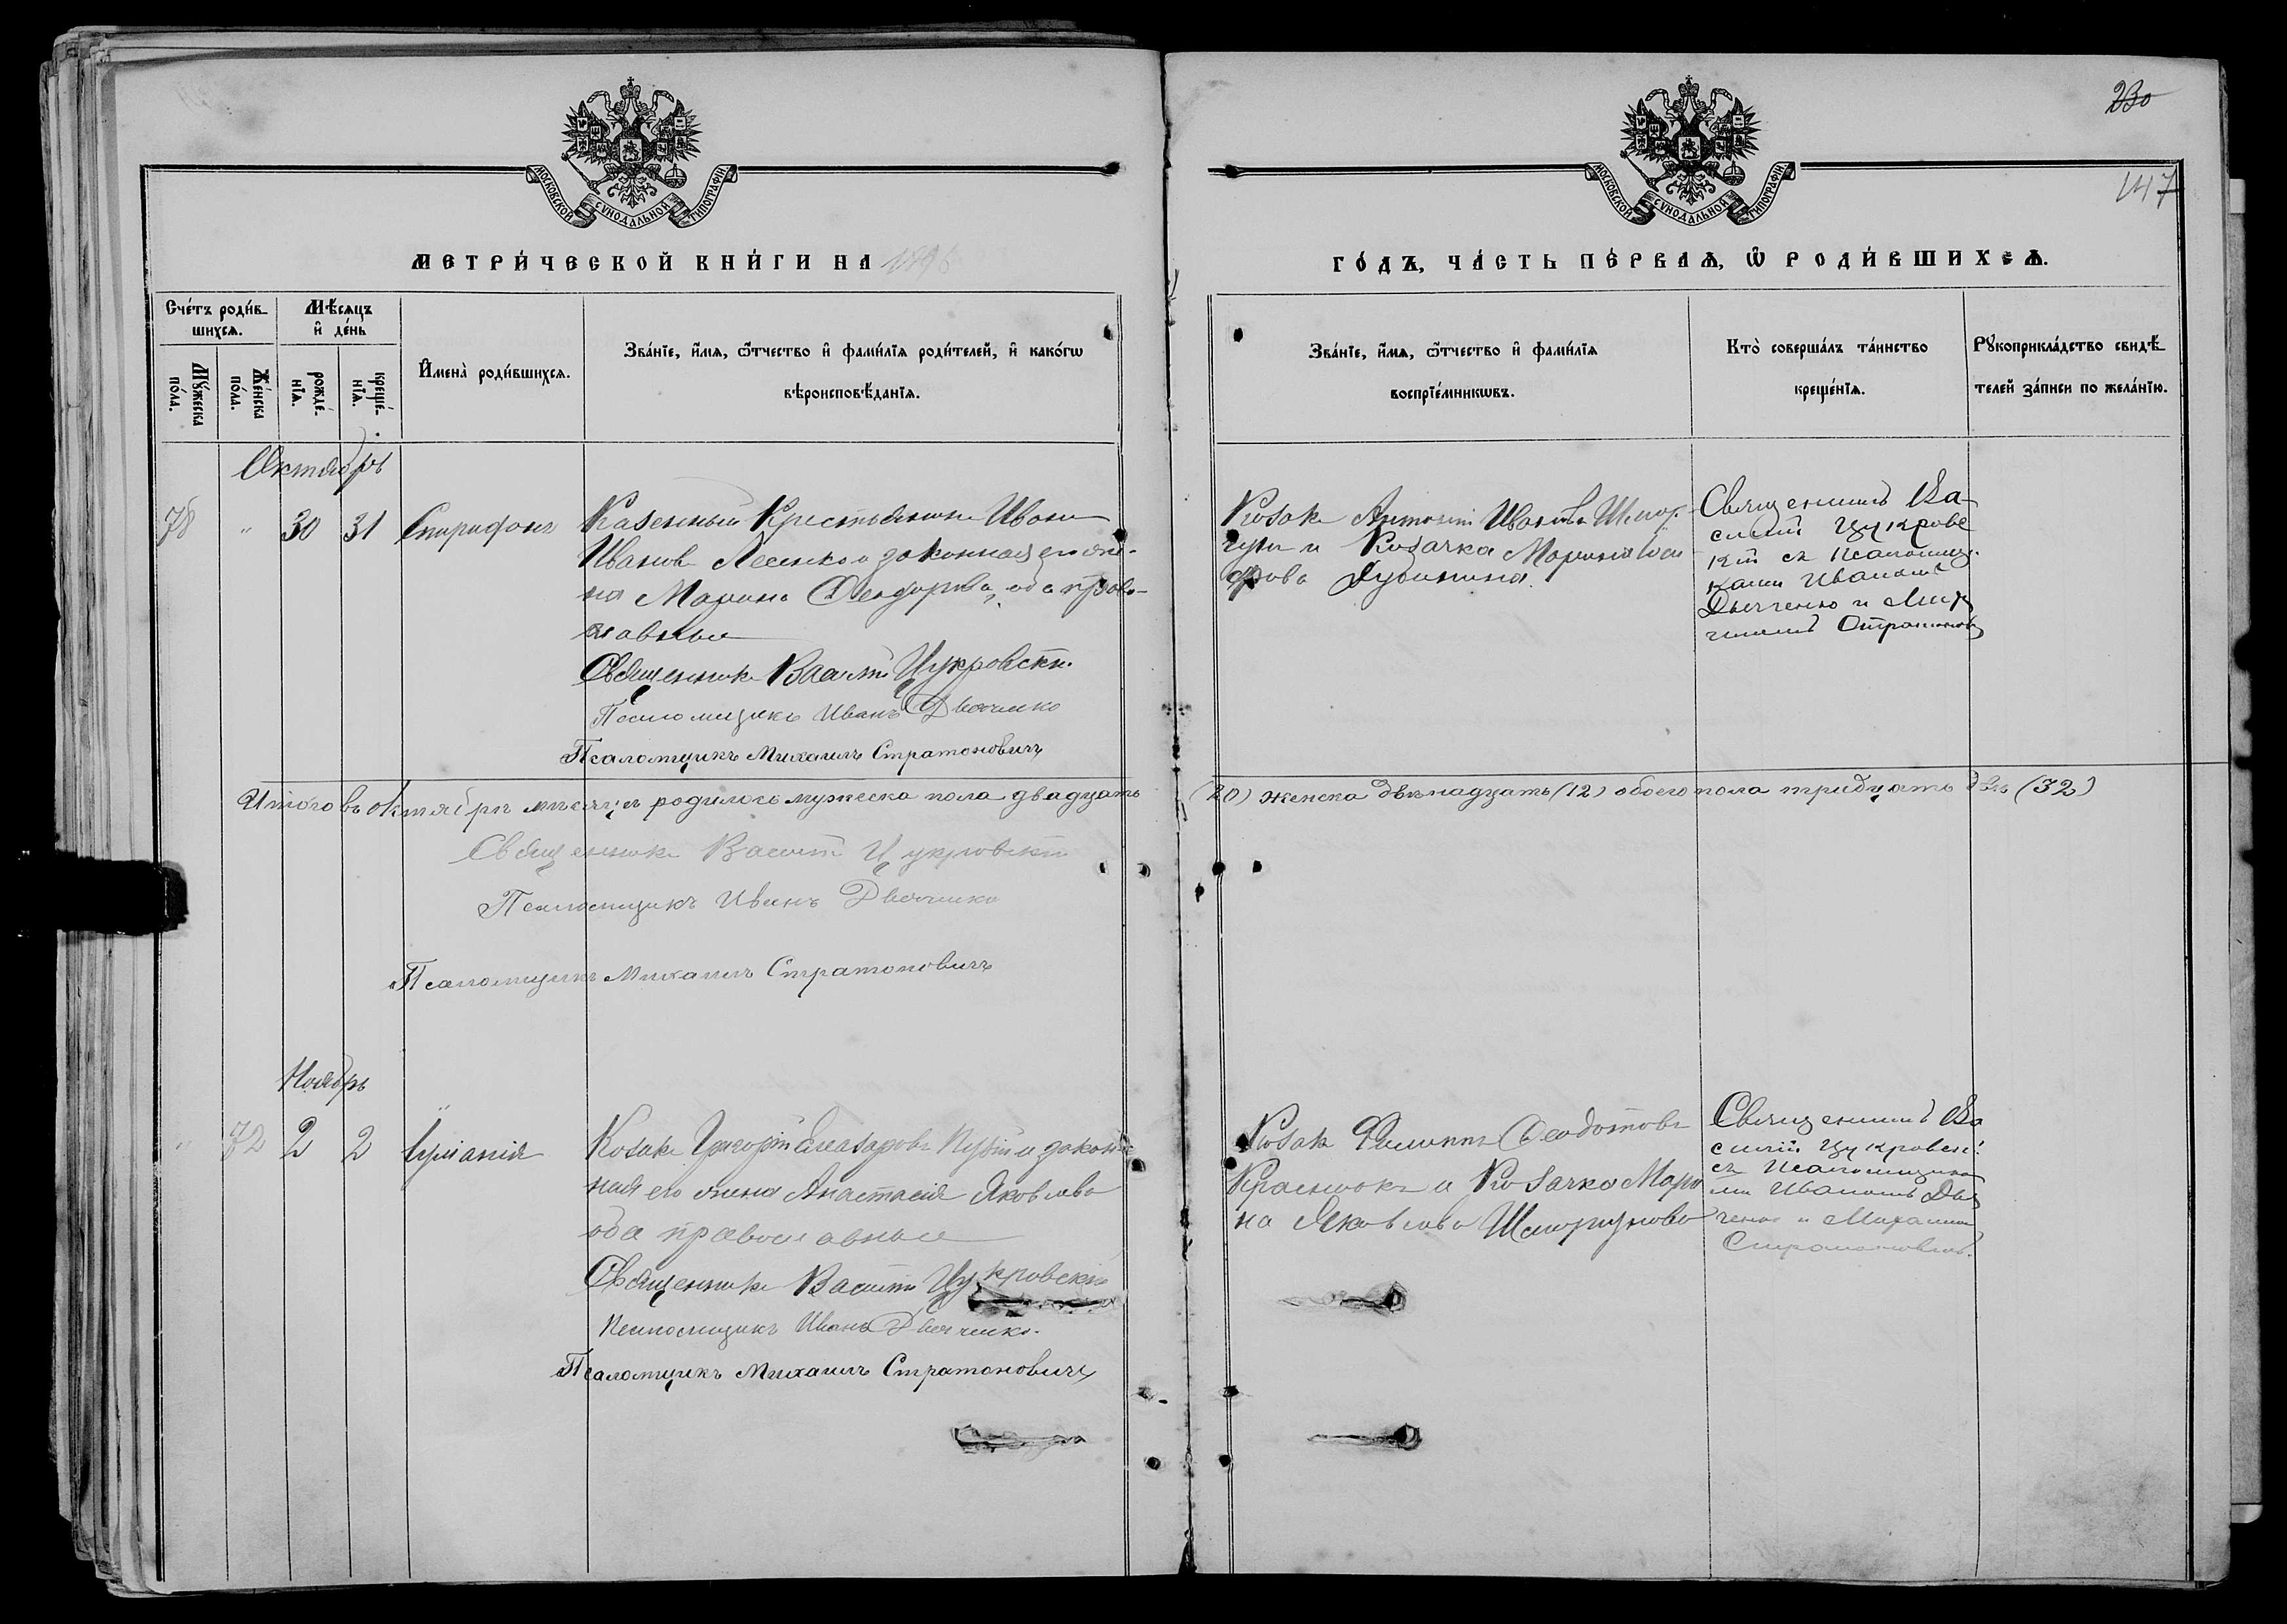 230
147
МОСКОВСКОЙ СѴНОДАЛЬНОЙ ТИПОГРАФІИ
МОСКОВСКОЙ СѴНОДАЛЬНОЙ ТИПОГРАФІИ
МЕТРИ́ЧЕСКОЙ КНИ́ГИ НА 1896
ГО́ДЪ, ЧА́СТЬ ПЕ́РВАѦ, Ѡ РОДИ́ВШИХСѦ.
Сче́тъ роди́в-
шихсѧ.
Мѣ́сѧцъ
и҆ де́нь
Мꙋ́жеска
по́ла.
Же́нска
по́ла.
рожде́-
нїѧ.
креще́-
нїѧ.
И҆мена̀ роди́вшихсѧ.
Зва́нїе, и҆́мѧ, ѻ҆́тчество и҆ фами́лїѧ роди́телей, и҆ како́гѡ
вѣроисповѣ́данїѧ.
Зва́нїе, и҆́мѧ, ѻ҆́тчество и҆ фами́лїѧ
воспрїе́мникѡвъ.
Кто̀ соверша́лъ та́инство
креще́нїѧ.
Рꙋкоприкла́дство свидѣ́-
телей за́писи по жела́нїю.
Октябрь
78 " 30 31 Спиридонъ
Казенный Крестьянинъ Иванъ
Ивановъ Лесенко и законная его же-
на Марина Феодорова, оба право-
славные
Священникъ Василій Цукровскій
Псаломщикъ Иванъ Дьяченко
Псаломщикъ Михаилъ Стратоновичъ
Козакъ Антоній Ивановъ
и Козачка Марина
Дубинина.
Священникъ Ва-
силій Цукровс
кій съ псаломщи-
ками Иваномъ
Дьяченко и Мих
Стратонов
Итого въ октябрѣ мѣсяцѣ родилось мужеска пола двадцать (20) женска двѣнадцать (12) обоего пола тридцать два (32)
Священникъ Василій Цукровскій
Псаломщикъ Иванъ Дьяченко
Псаломщикъ Михаилъ Стратоновичъ
Ноябрь
" 72 2 2 Іуліанія
Козакъ Григорій Елеазаровъ и закон-
ная его жена Анастасія Яковлева
оба православные
Священникъ Василій Цукровскій
Псаломщикъ Иванъ Дьяченко.
Псаломщикъ Михаилъ Стратоновичъ
Козакъ Филиппъ Феодотовъ
и Козачка Мари
на Яковлева
Священникъ Ва
силій Цукровскі
съ псаломщика
ми Иваномъ Дья
ченко и Михаиломъ
Стратоновичъ.